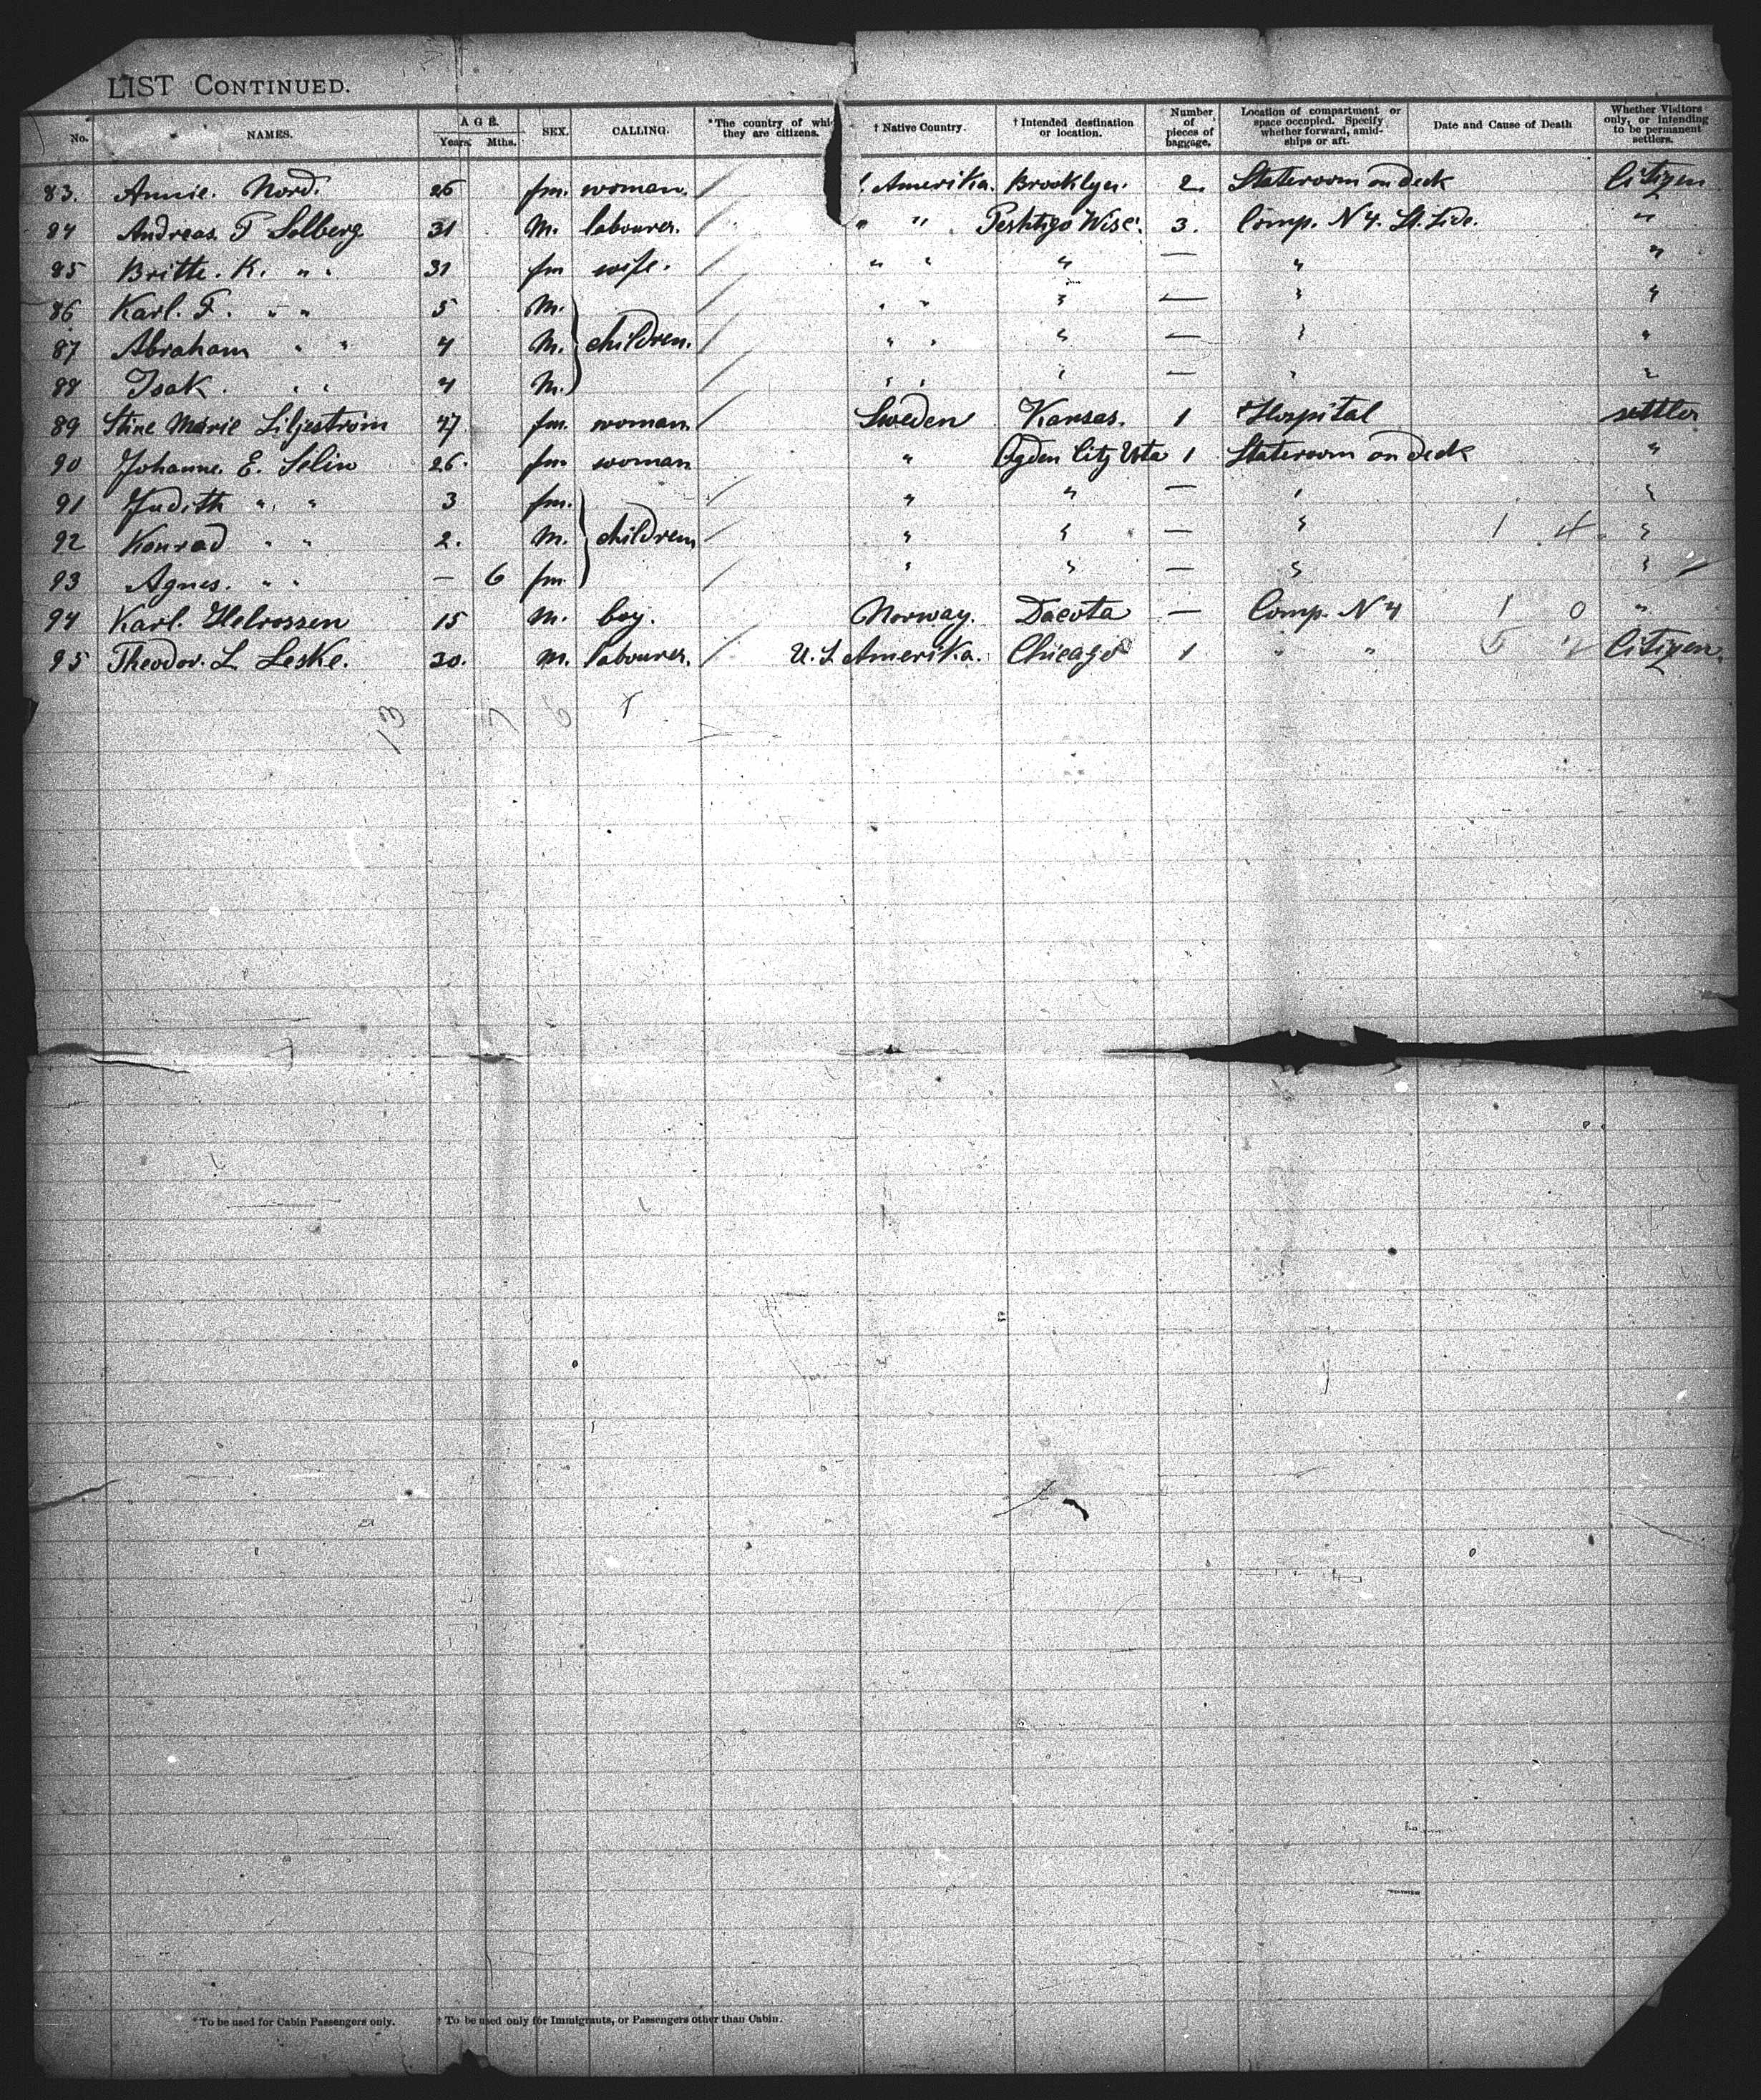 LIST CONTINUED.
No. NAMES. AGE. Years. Mths. SEX. CALLING. *The country of whi they are citizens. † Native Country. † Intended destination or location. Number of pieces of baggage. Location of compartment or space occupied. Specify whether forward, amidships or aft. Date and Cause of Death Whether Visitors only, or intending to be permanent settlers.
83. Annie. Nord. 26 fm. woman. / Amerika. Brooklyn. 2. Stateroom on deck Citizen
84 Andreas F Solberg 31 M. labourer. / " " Peshtigo Wisc. 3. Comp. N 4. St. Side. "
85 Britte. K. " " 31 fm wife. / " " " — " "
86 Karl. F. " " 5 M. / " " " — " "
87 Abraham " " 4 M. children. / " " " — " "
88 Isak. " " 4 M. / " " " — " "
89 Stine Marie Liljestrom 47 fm. woman / Sweden Kansas. 1 Hospital settler
90 Johanne. E. Selin 26. fm woman / " Ogden City Uta 1 Stateroom on deck "
91 Judith " " 3 fm. / " " — " "
92 Konrad " " 2. M. children / " " — " 1 4 "
93 Agnes. " " — 6 fm. / " " — " "
94 Karl. Helrossen 15 M. boy. Norway. Dacota — Comp. N 4 1 0 "
95 Theodor. L. Leske. 30. M. labourer. / U. S Amerika. Chicago 1 " " 5 Citizen.
13 7 6
*To be used for Cabin Passengers only. † To be used only for Immigrants, or Passengers other than Cabin.